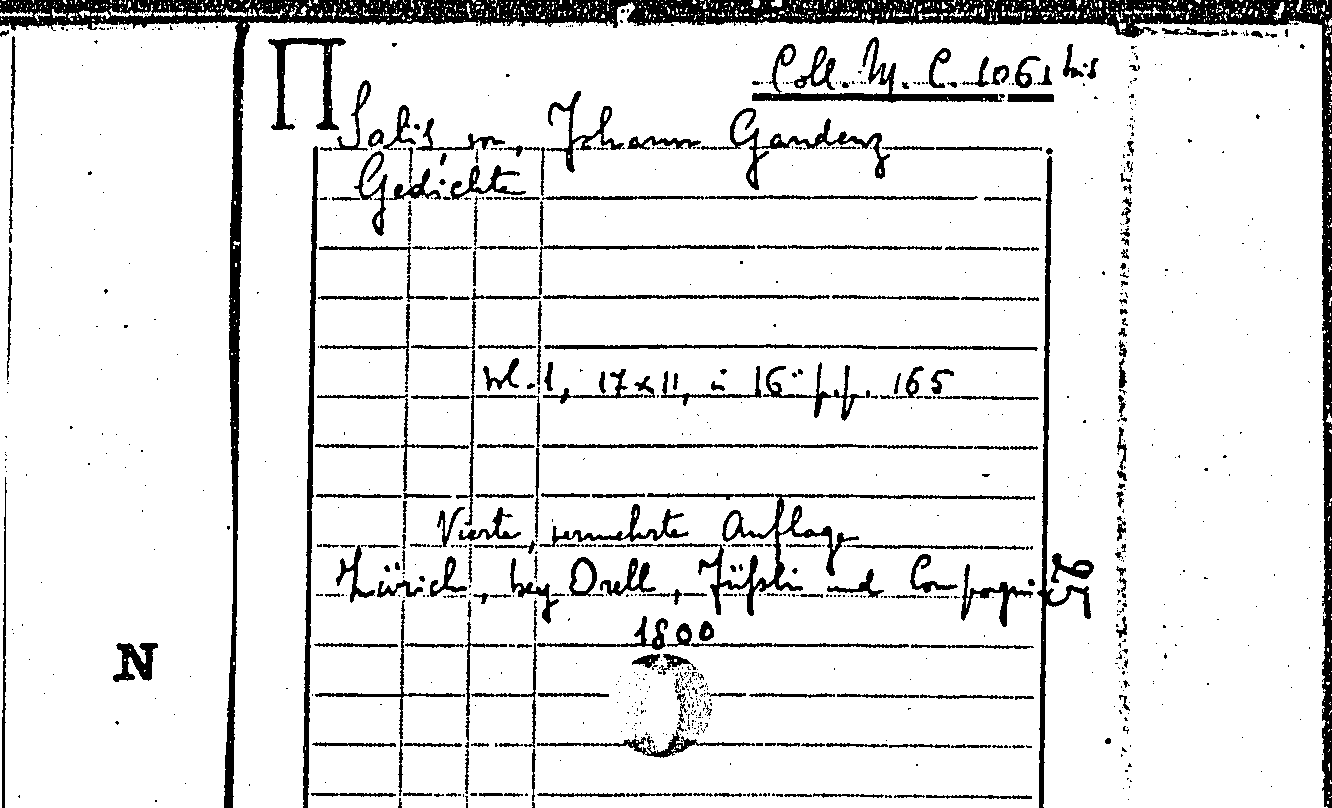 Coll. M. C. 1061 bis
Π
Salis von, Johann Gaudenz
Gedichte
vol. 1, 17x11, in 16° p.p. 165
Vierte, vermehrte Auflage
Zürich, bey Orell, Füßli und Compagnie
1800
N